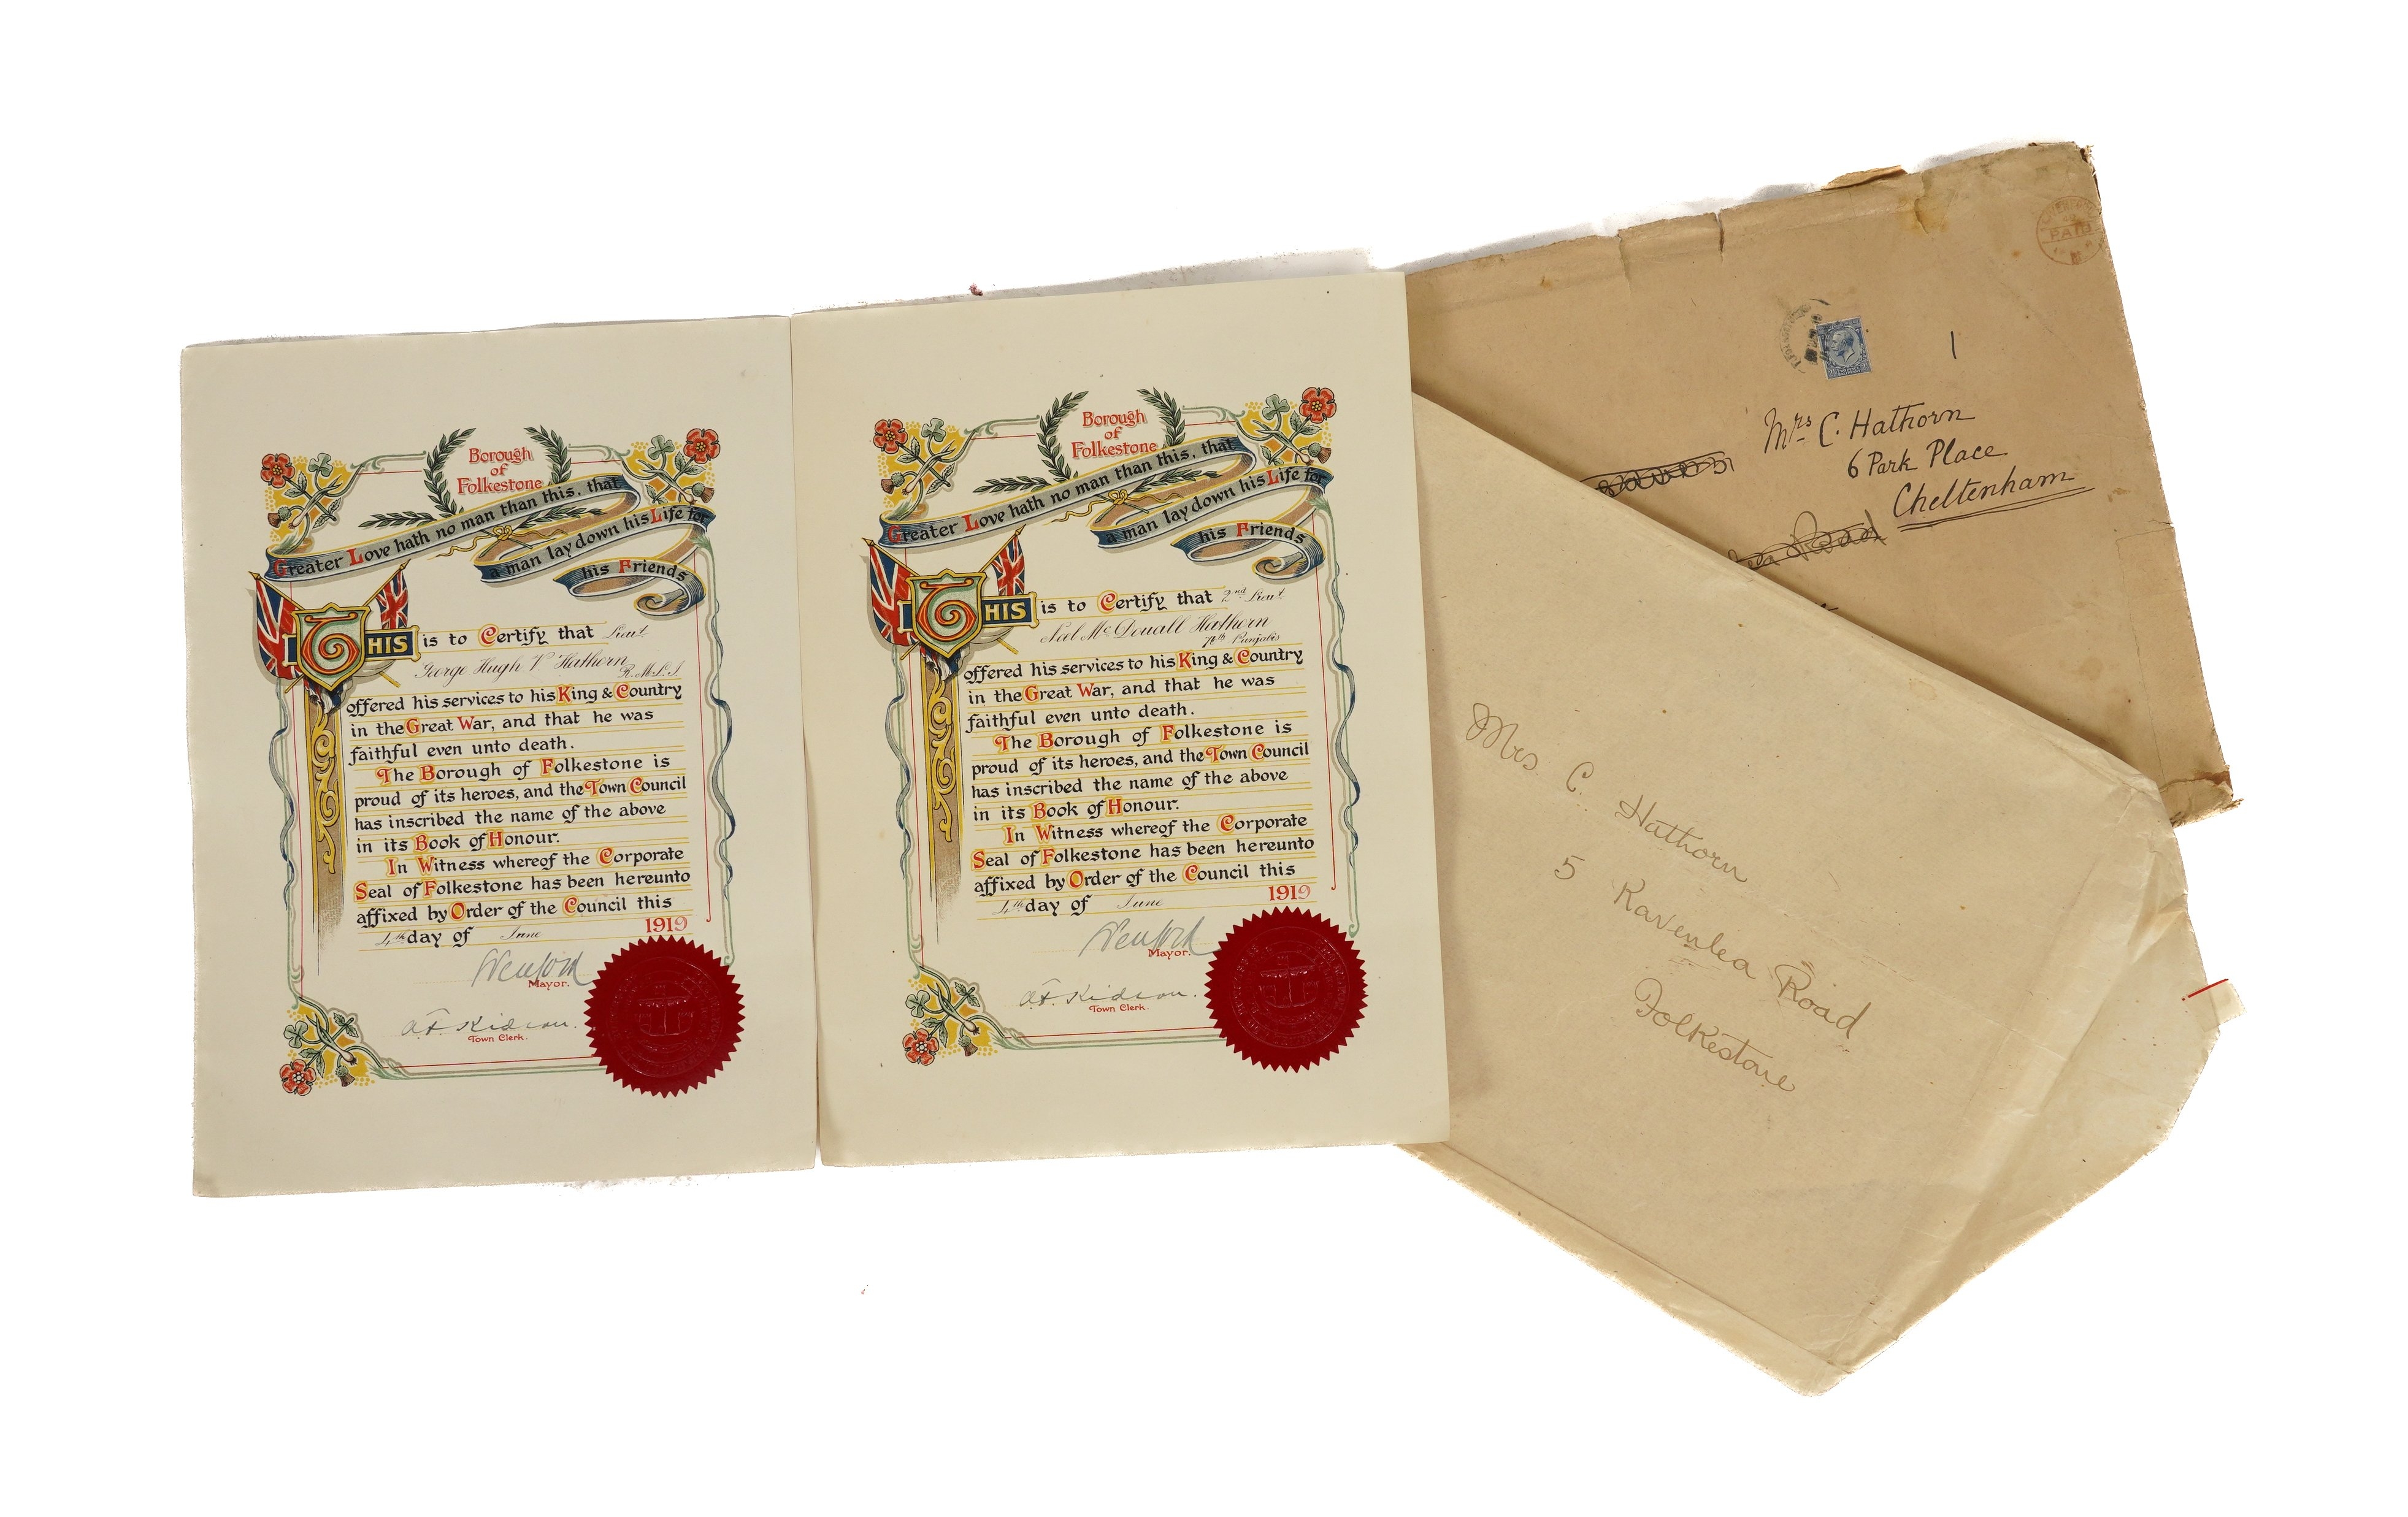 Borough
of
Folkestone
Greater Love hath no man than this, that
a man lay down his Life for
his Friends
THIS is to Certify that Lieut.
George Hugh V Hathorn
R.M.L.I
offered his services to his King & Country
in the Great War, and that he was
faithful even unto death.
The Borough of Folkestone is
proud of its heroes, and the Town Council
has inscribed the name of the above
in its Book of Honour.
In Witness whereof the Corporate
Seal of Folkestone has been hereunto
affixed by Order of the Council this
4th day of June 1919
Mayor.
A.F. Kidson.
Town Clerk.
Borough
of
Folkestone
Greater Love hath no man than this, that
a man lay down his Life for
his Friends
THIS is to Certify that 2nd Lieut.
Noel McDouall Hathorn
Punjabis
offered his services to his King & Country
in the Great War, and that he was
faithful even unto death.
The Borough of Folkestone is
proud of its heroes, and the Town Council
has inscribed the name of the above
in its Book of Honour.
In Witness whereof the Corporate
Seal of Folkestone has been hereunto
affixed by Order of the Council this
4th day of June 1919
Mayor.
A.F. Kidson.
Town Clerk.
PAID
1
Mrs C. Hathorn
6 Park Place
Cheltenham
Road
Mrs C. Hathorn
5 Ravenlea Road
Folkestone